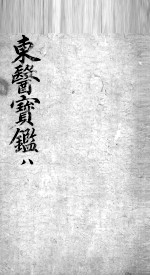 東醫寶鑑 八